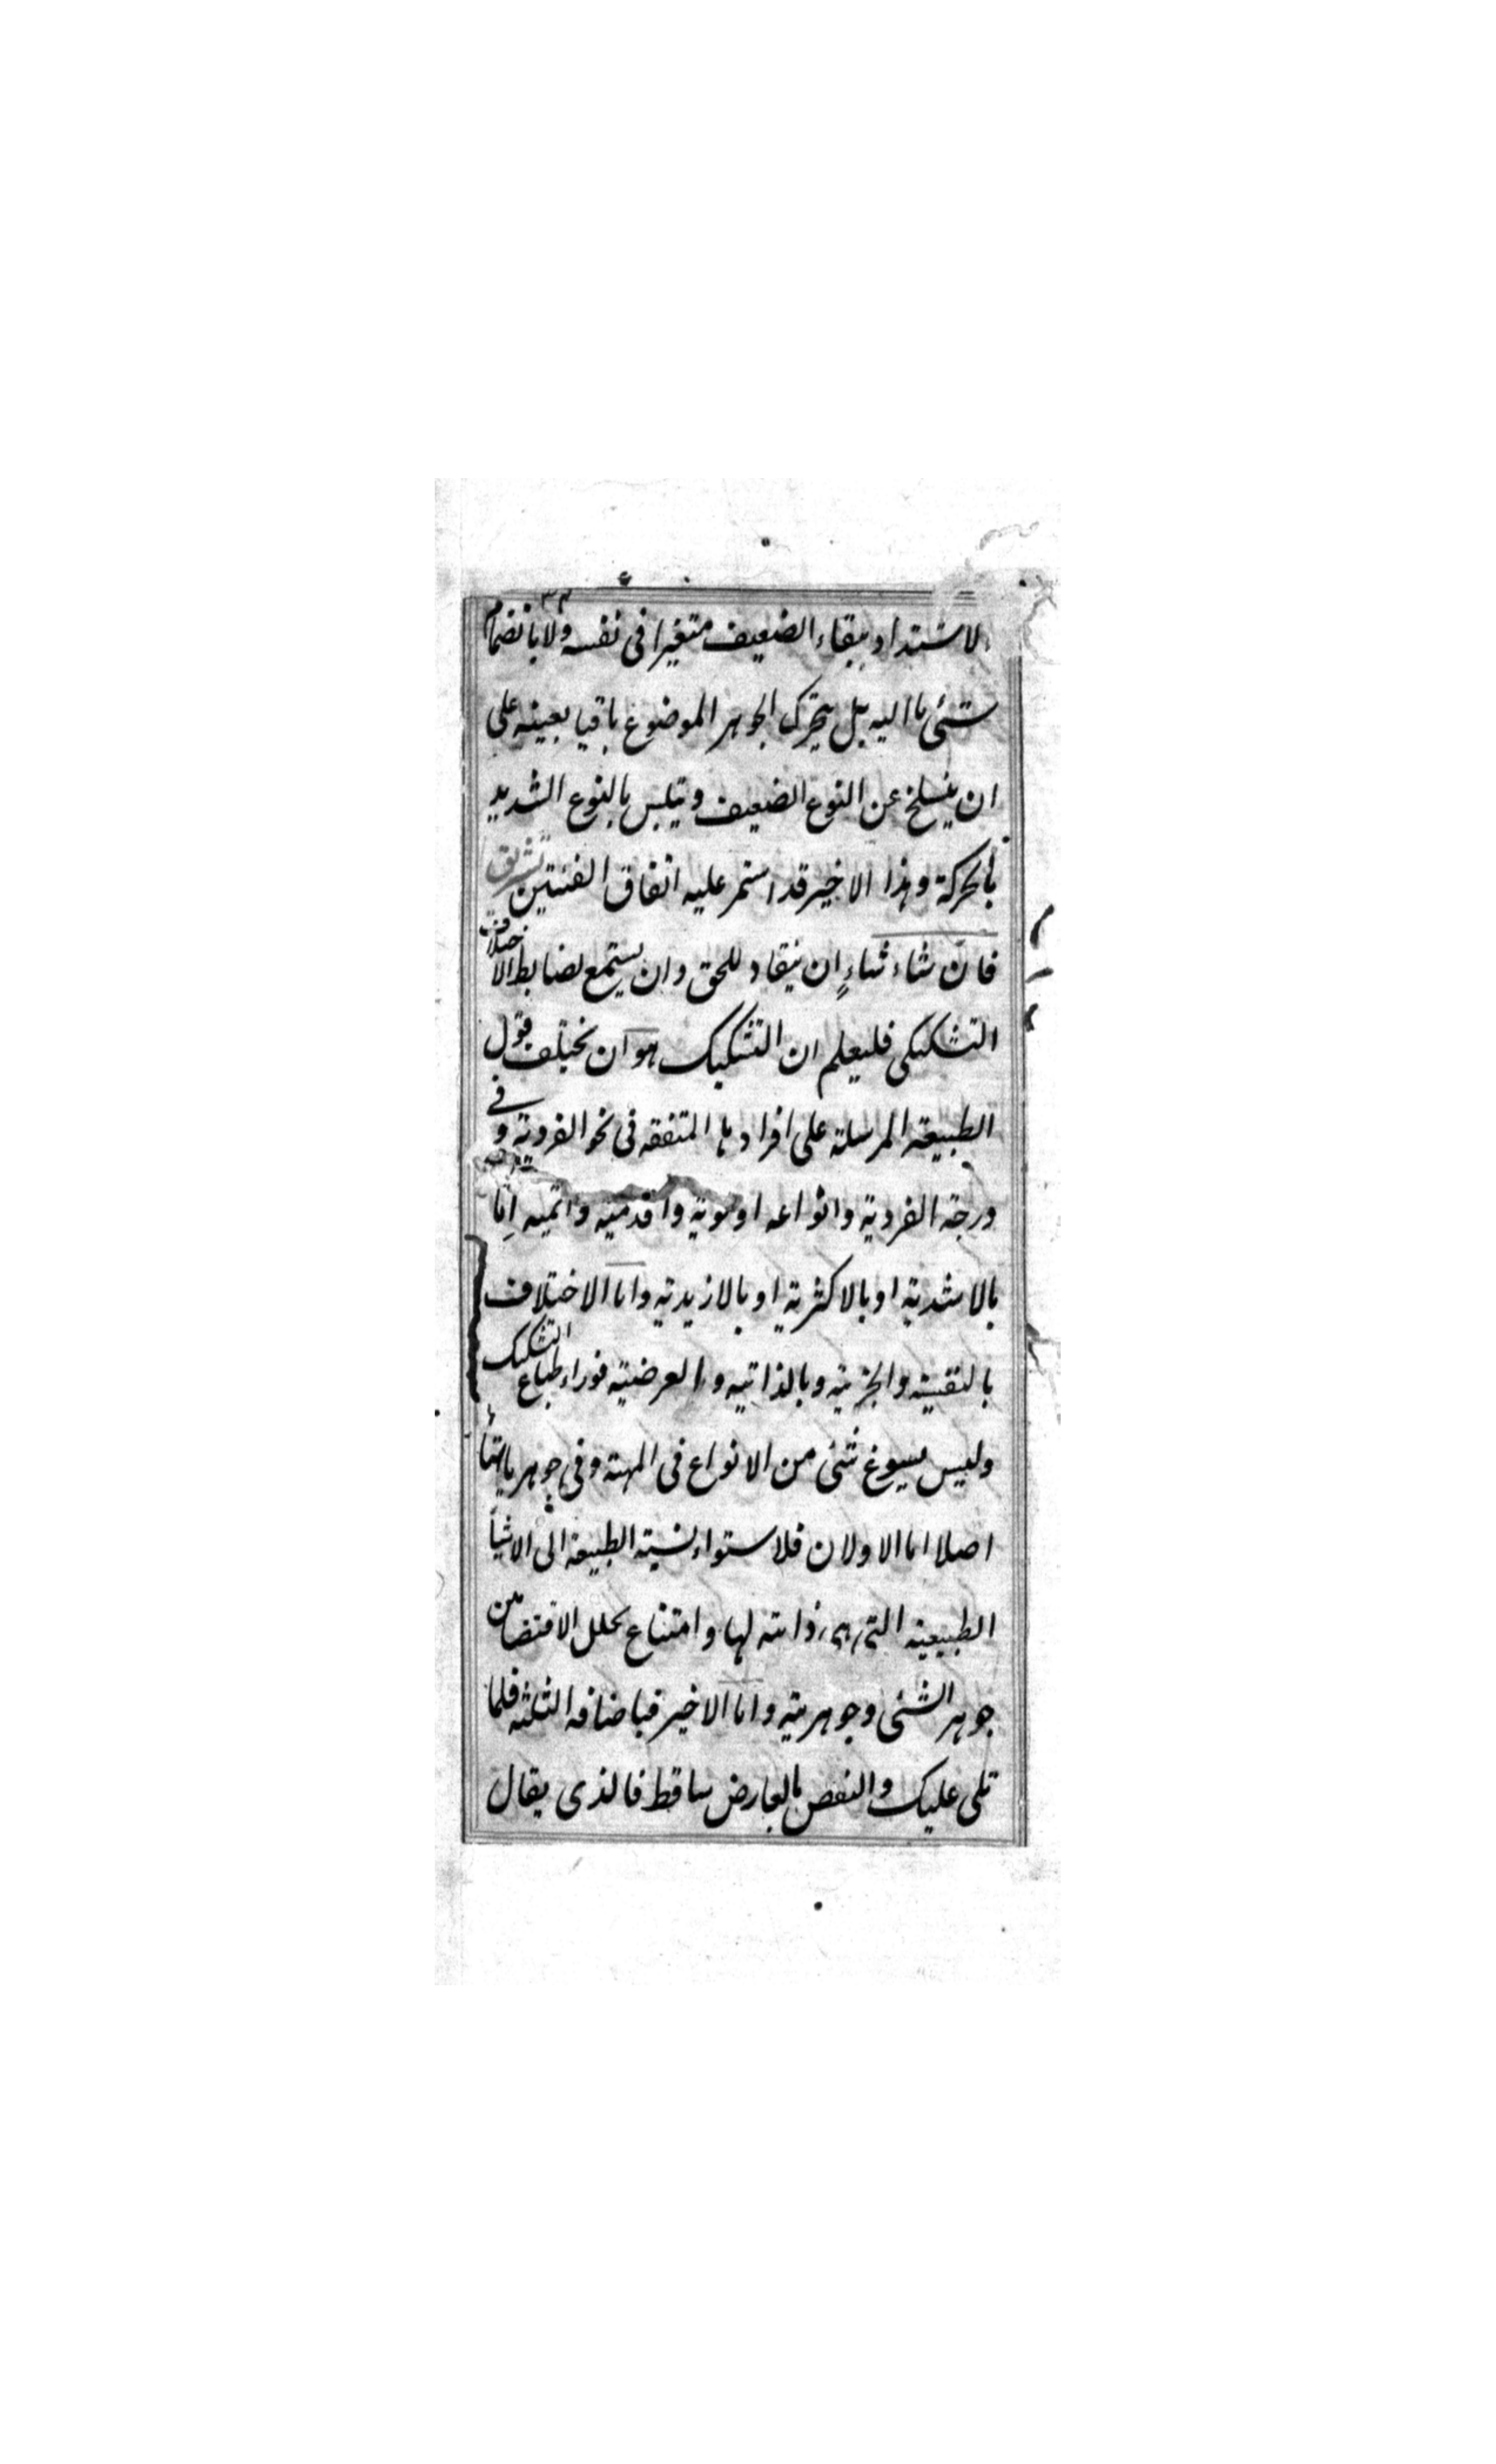 الاشتداد ببقاء الضعيف متغيرا في نفسه ولا بانضمام
شئ ما اليه بل يتحرك الجوهر الموضوع باقيا بعينه على
ان ينسلخ عن النوع الضعيف ويتلبس بالنوع الشديد
بالحركة وهذا الاخير قد استمر عليه اتفاق الفئتين تشريق
فان شاء شاءٍ ان ينقاد للحق وان يستمع لضابط الاختلاف
التشكيكى فليعلم ان التشكيك هو ان يختلف قول
الطبيعة المرسلة على افرادها المتفقه فى نحو الفردية وفى
درجة الفردية وانواعه اولوية واقدمية واتميه اِمّا
بالاشدية او بالاكثرية او بالازيدية واما الاختلاف
والجزئية وبالذاتيه والعرضية فوراء طباع التشكيك
وليس يسوغ شئ من الانواع فى المهية وفى جوهرياتها
اصلا اما الاولان فلاستواء نسبة الطبيعة الى الاشيأ
الطبيعية التى هى ذاتيه لها وامتناع تخلل الاقتضا بين
جوهر الشئ وجوهريته واما الاخير فباضافه الثلثه فلما
تلى عليك والنقص بالعارض ساقط فالذى يقال